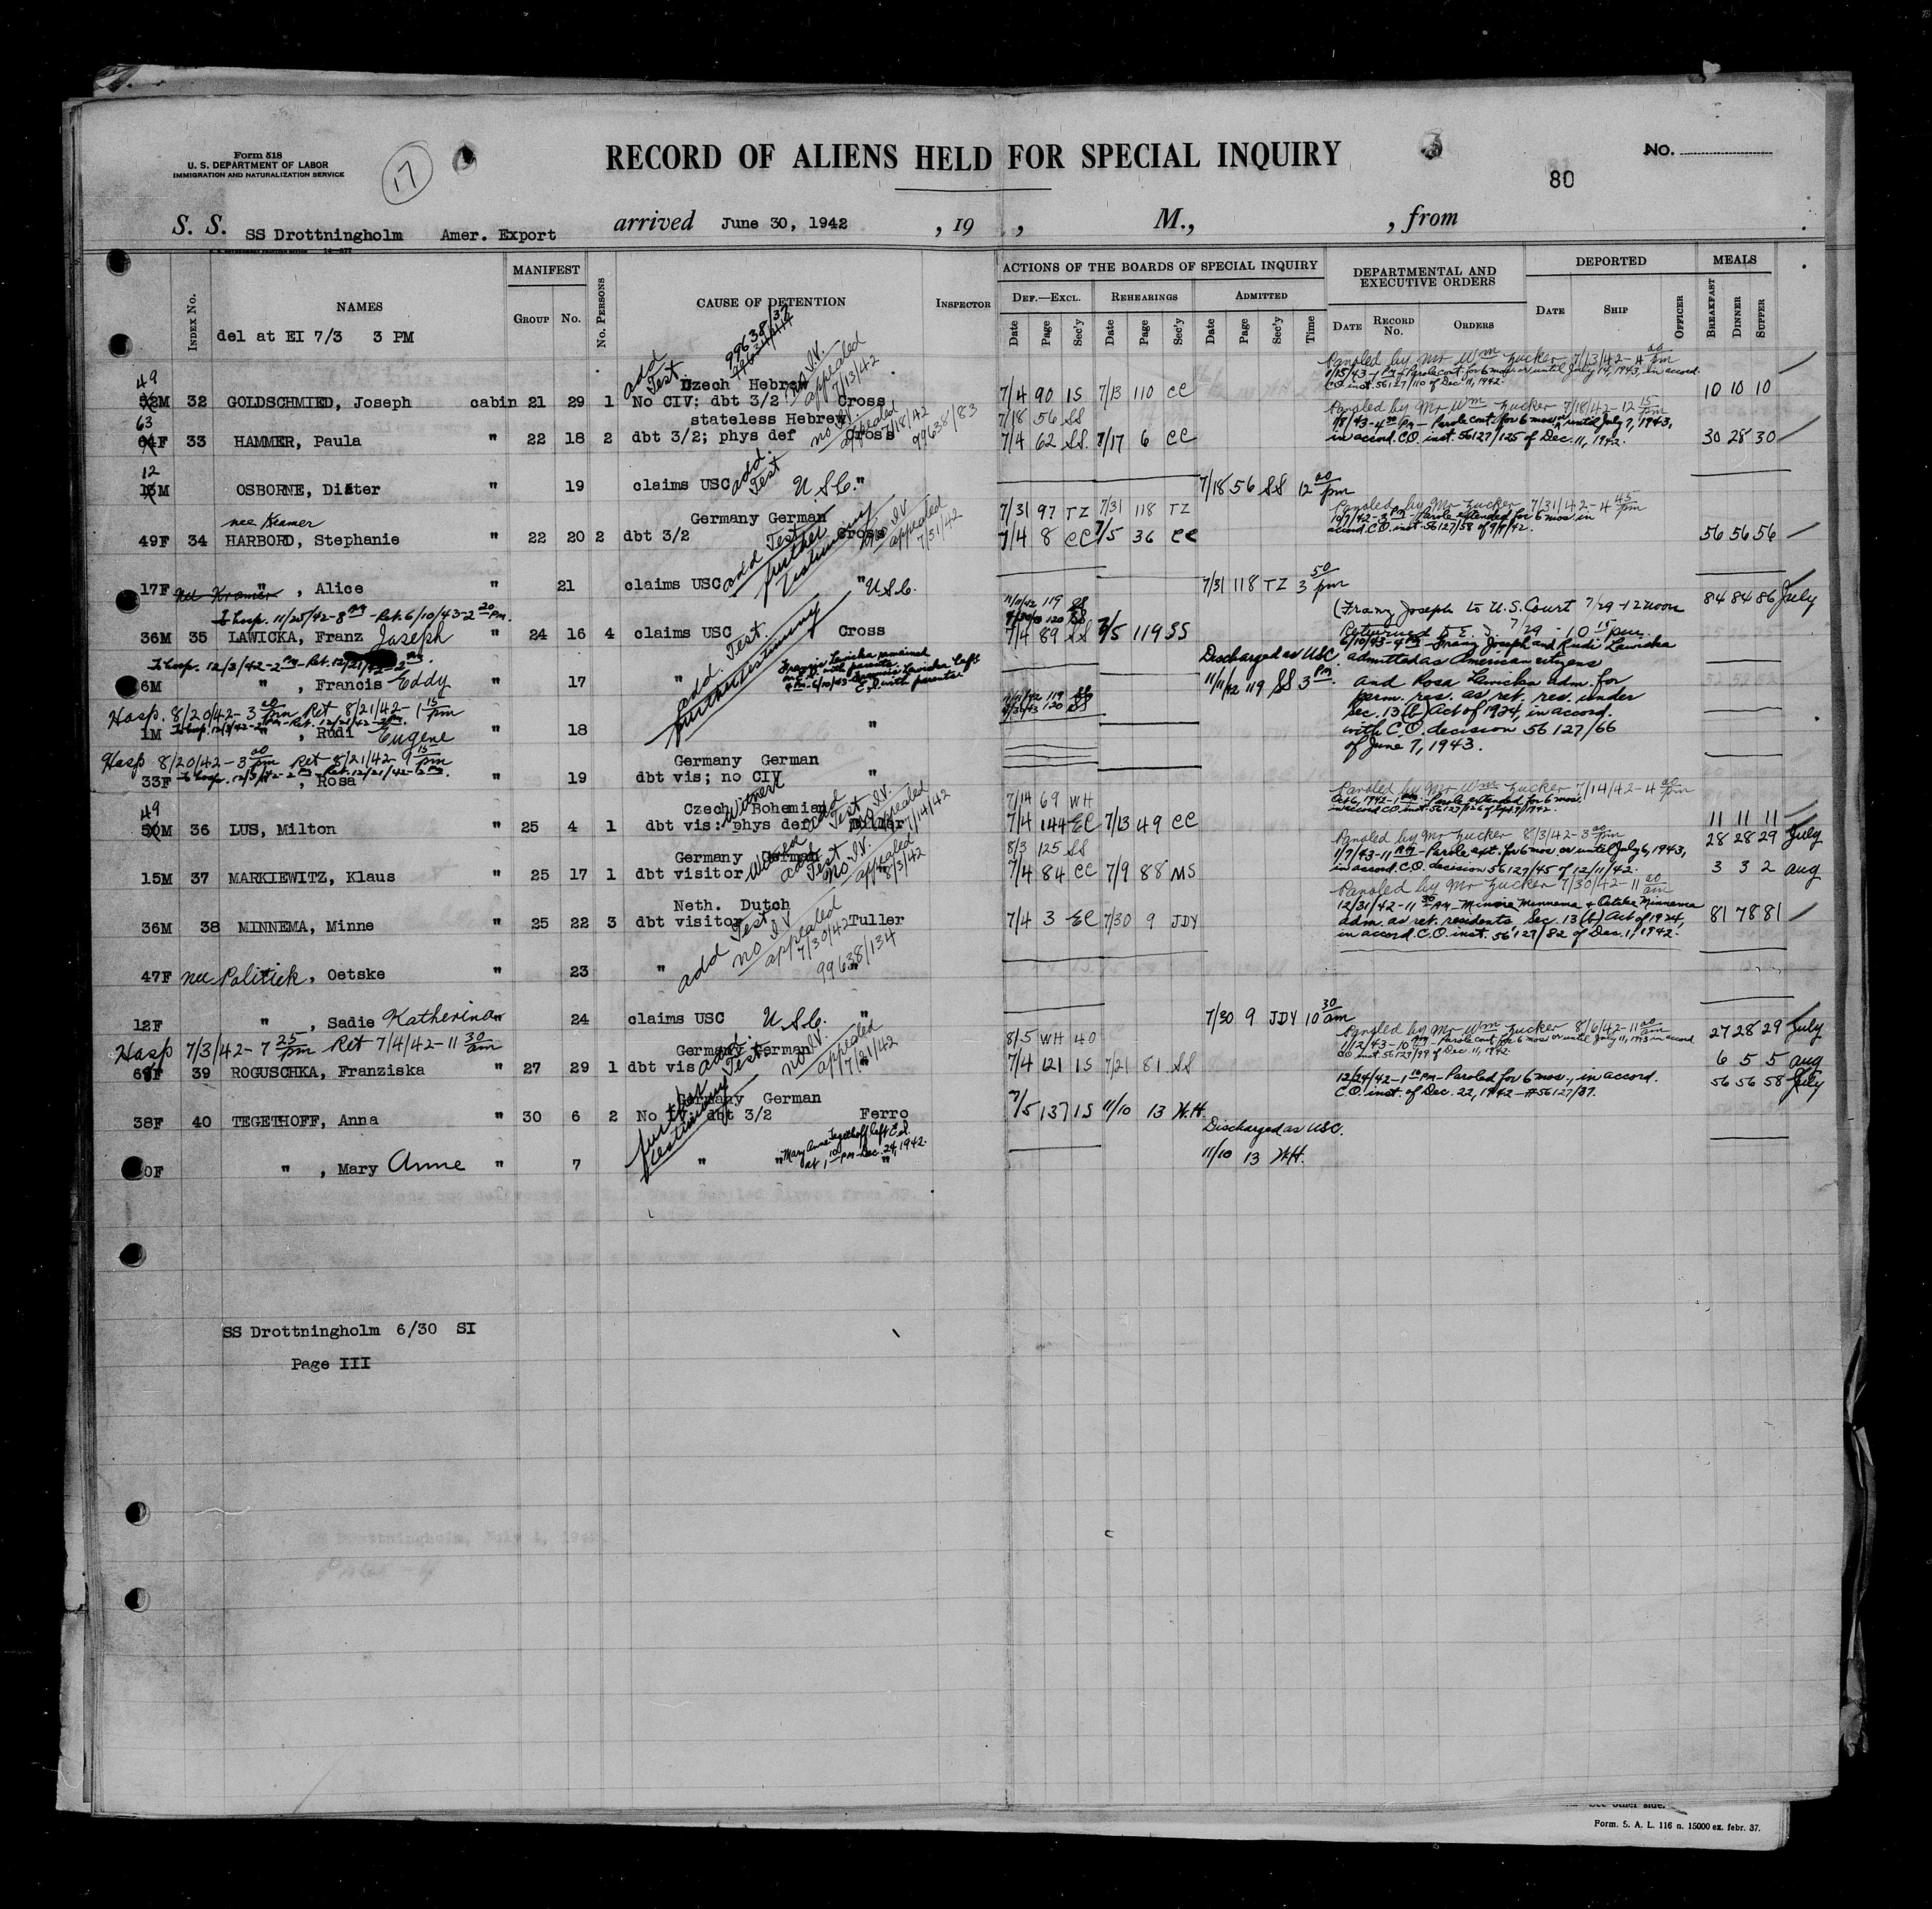 Form 518
U. S. DEPARTMENT OF LABOR
IMMIGRATION AND NATURALIZATION SERVICE
17
RECORD OF ALIENS HELD FOR SPECIAL INQUIRY
3
80
No.
S. S. SS Drottningholm Amer. Export arrived June 30, 1942 , 19 , M., , from
Index No.
NAMES
MANIFEST
Group No.
No. Persons
CAUSE OF DETENTION
Inspector
ACTIONS OF THE BOARDS OF SPECIAL INQUIRY
Def.—Excl. Rehearings Admitted
Date Page Sec'y Date Page Sec'y Date Page Sec'y Time
DEPARTMENTAL AND EXECUTIVE ORDERS
Date Record No. Orders
DEPORTED
Date Ship Officer
MEALS
Breakfast Dinner Supper
del at EI 7/3 3 PM
99638/37
add Test no IV. appealed 7/13/42
Czech Hebrew
Paroled by Mr Wm Zucker 7/13/42 - 4 00 pm
1/15/43 - Parole cont. for 6 mos or until July 14, 1943, in accord.
C.O. inst. 56127/110 of Dec. 11, 1942.
49
52M 32 GOLDSCHMIED, Joseph cabin 21 29 1 No CIV; dbt 3/2 Cross 7/4 90 IS 7/13 110 CC 10 10 10
stateless Hebrew 7/18 56 SS
no IV. appealed 7/18/42 99638/83
Paroled by Mr Wm Zucker 7/18/42 - 12 15 pm
1/8/43 - 4 PM - Parole cont. for 6 mos. or until July 7, 1943,
in accord. C.O. inst. 56127/125 of Dec. 11, 1942.
63
64F 33 HAMMER, Paula " 22 18 2 dbt 3/2; phys def Cross 7/4 62 SS. 7/17 6 CC 30 28 30
12
13M OSBORNE, Dieter " 19 claims USC add. Test U.S.C. " 7/18 56 SS 12 00 pm
nee Kramer
Germany German 7/31 97 TZ 7/31 118 TZ
Paroled by Mr Zucker 7/31/42 - 4 45 pm
10/7/42 - 3 PM - Parole extended for 6 mos. in
accord. C.O. inst. 56127/58 of 9/9/42.
49F 34 HARBORD, Stephanie " 22 20 2 dbt 3/2 Cross 7/4 8 CC 7/5 36 CC 56 56 56
add Test further testimony no IV appealed 7/31/42
17F " , Alice " 21 claims USC " U.S.C. 7/31 118 TZ 3 50 pm
nee Kramer
To hosp. 11/25/42 - 8 PM - Ret. 6/10/43 - 2 20 pm.
11/10/42 119 SS
(Franz Joseph to U.S. Court 7/29 - 12 noon
84 84 86 July
36M 35 LAWICKA, Franz Joseph " 24 16 4 claims USC Cross 7/4 89 SS 7/5 119 SS
Returned to E.I. 7/29 - 10 15 pm.
add. Test. further testimony
To hosp. 12/3/42 - 2 PM - Ret. 12/21/42 - 2 PM.
Francis Lawicka remained
on E.I. with parents.
4 PM - 6/10/43 - Francis Lawicka left
E.I. with parents.
6M " , Francis Eddy " 17 "
Discharged as USC.
11/11/42 119 SS 3 PM.
6/10/43 - 4 PM - Franz Joseph and Rudi Lawicka
admitted as American citizens
and Rosa Lawicka adm. for
perm. res. as ret. res. under
sec. 13(b) Act of 1924, in accord.
with C.O. decision 56127/66
of June 7, 1943.
Hosp. 8/20/42 - 3 00 pm Ret 8/21/42 - 1 15 pm
To hosp. 12/3/42 - 2 PM - Ret. 12/21/42 - 2 PM.
1M " , Rudi Eugene " 18 "
Hosp 8/20/42 - 3 00 pm Ret 8/21/42 - 9 15 pm
To hosp. 12/3/42 - 2 PM - Ret. 12/21/42 - 2 PM.
Germany German
33F " , Rosa " 19 dbt vis; no CIV "
49
Czech Bohemian 7/14 69 WH
Paroled by Mr Wm Zucker 7/14/42 - 4 00 pm
Oct 6, 1942 - 1 PM - Parole extended for 6 mos.
50M 36 LUS, Milton " 25 4 1 dbt vis: phys def Tuller 7/4 144 EC 7/13 49 CC 11 11 11
Witness add Test no IV. appealed 7/14/42
Germany German 8/3 125 SS
Paroled by Mr Zucker 8/3/42 - 3 00 pm
28 28 29 July
1/7/43 - 11 AM - Parole ext. for 6 mos. or until July 6, 1943,
in accord. C.O. decision 56127/45 of 12/11/42.
15M 37 MARKIEWITZ, Klaus " 25 17 1 dbt visitor 7/4 84 CC 7/9 88 MS 3 3 2 aug
add Test no IV. appealed 8/3/42
Neth. Dutch
Paroled by Mr Zucker 7/30/42 - 11 00 am
12/31/42 - 11 30 AM - Minne Minnema & Oetske Minnema
adm. as ret. residents Sec. 13(b) Act of 1924,
in accord. C.O. inst. 56127/82 of Dec. 1, 1942.
36M 38 MINNEMA, Minne " 25 22 3 dbt visitor Tuller 7/4 3 EC 7/30 9 JDY 81 78 81
add Test no IV appealed 7/30/42 99638/134
47F nee Politiek, Oetske " 23 " "
12F " , Sadie Katherina " 24 claims USC U.S.C. " 7/30 9 JDY 10 30 am
Hosp 7/3/42 - 7 25 pm Ret 7/4/42 - 11 30 am
Germany German 8/5 WH 40
Paroled by Mr Wm Zucker 8/6/42 - 11 00 am
1/12/43 - 10 AM - Parole cont. for 6 mos or until July 11, 1943 in accord
C.O. inst. 56127/99 of Dec. 11, 1942.
27 28 29 July
39 ROGUSCHKA, Franziska " 27 29 1 dbt vis " 7/4 121 IS 7/21 81 SS 6 5 5 aug
add. Test. no IV. appealed 7/21/42
Germany German
12/24/42 - 1 10 PM - Paroled for 6 mos., in accord.
C.O. inst. of Dec. 22, 1942 - #56127/37.
56 56 58 July
38F 40 TEGETHOFF, Anna " 30 6 2 No IV; dbt 3/2 Ferro 7/5 137 IS 11/10 13 W.H.
further testimony
Discharged as USC.
"Mary Anne Tegethoff left E.I.
at 1 10 PM - Dec. 24, 1942.
0F " , Mary Anne " 7 " " 11/10 13 WH.
SS Drottningholm 6/30 SI
Page III
Form. 5. A. L. 116 n. 15000 ex. febr. 37.